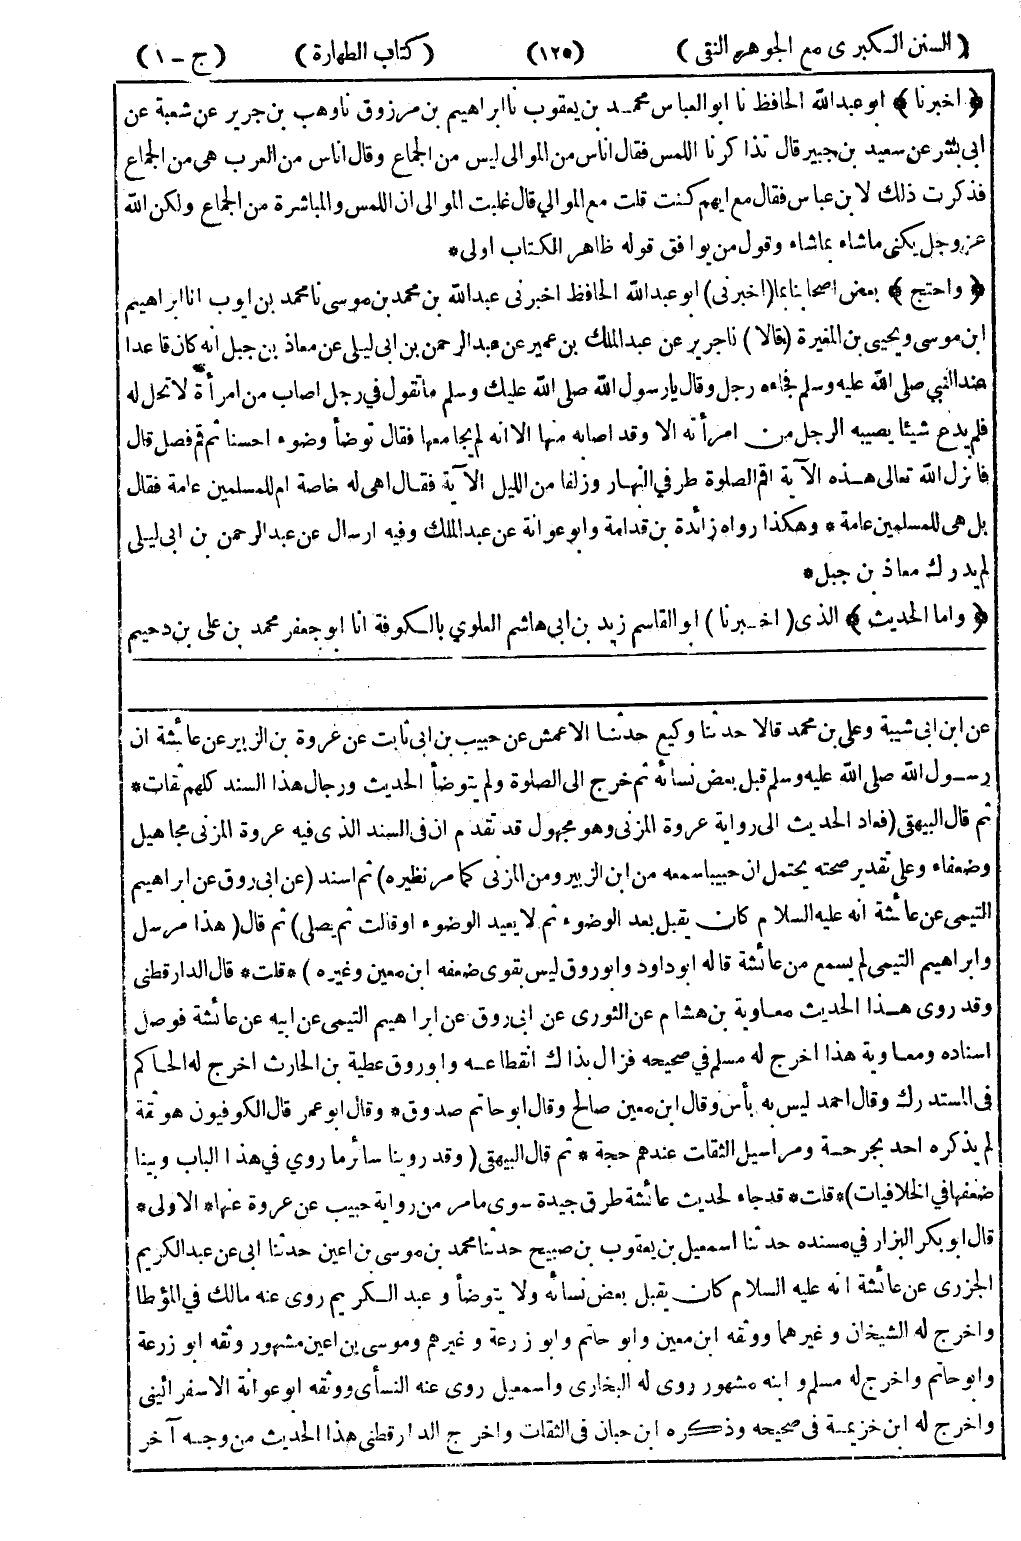 (السنن الكبرى مع الجوهر النقى) (١٢٥) (كتاب الطهارة) (ج - ١)
﴿ اخبرنا ﴾ ابو عبدالله الحافظ نا ابو العباس محمد بن يعقوب نا ابراهيم بن مرزوق نا وهب بن جرير عن شعبة عن
ابى بشر عن سعيد بن جبير قال تذاكرنا اللمس فقال اناس من الموالى ليس من الجماع وقال اناس من العرب هى من الجماع
فذكرت ذلك لابن عباس فقال مع ايهم كنت قلت مع الموالي قال غلبت الموالى ان اللمس والمباشرة من الجماع ولكن الله
عز وجل يكنى ماشاء بماشاء وقول من يوافق قوله ظاهر الكتاب اولى*
﴿ واحتج ﴾ بعض اصحابنا بما (اخبرنى) ابو عبدالله الحافظ اخبرنى عبدالله بن محمد بن موسى نا محمد بن ايوب انا ابراهيم
ابن موسى ويحيى بن المغيرة (قالا) نا جرير عن عبد الملك بن عمير عن عبد الرحمن بن ابى ليلى عن معاذ بن جبل انه كان قاعدا
عند النبى صلى الله عليه وسلم فجاءه رجل وقال يا رسول الله صلى الله عليك وسلم ماتقول في رجل اصاب من امرأة لا تحل له
فلم يدع شيئا يصيبه الرجل من امرأته الا وقد اصابه منها الا انه لم يجامعها فقال توضأ وضوء احسنا ثم قم فصل قال
فانزل الله تعالى هذه الآية اقم الصلوة طرفي النهار وزلفا من الليل الآية فقال اهى له خاصة ام للمسلمين عامة فقال
بل هى للمسلمين عامة * وهكذا رواه زائدة بن قدامة وابو عوانة عن عبد الملك وفيه ارسال عن عبد الرحمن بن ابى ليلى
لم يدرك معاذ بن جبل*
﴿ واما الحديث ﴾ الذى (اخبرنا) ابو القاسم زيد بن ابى هاشم العلوي بالكوفة انا ابو جعفر محمد بن على بن دحيم
عن ابن ابى شيبة وعلى بن محمد قالا حدثنا وكيع حدثنا الاعمش عن حبيب بن ابى ثابت عن عروة بن الزبير عن عائشة ان
رسول الله صلى الله عليه وسلم قبل بعض نسائه ثم خرج الى الصلوة ولم يتوضأ الحديث ورجال هذا السند كلهم ثقات*
ثم قال البيهقى (فعاد الحديث الى رواية عروة المزنى وهو مجهول قد تقدم ان فى السند الذى فيه عروة المزنى مجاهيل
وضعفاء وعلى تقدير صحته يحتمل ان حبيبا سمعه من ابن الزبير ومن المزنى كما مر نظيره) ثم اسند (عن ابى روق عن ابراهيم
التيمى عن عائشة انه عليه السلام كان يقبل بعد الوضوء ثم لا يعيد الوضوء اوقالت ثم يصلى) ثم قال (هذا مرسل
وابراهيم التيمى لم يسمع من عائشة قاله ابو داود وابوروق ليس بقوى ضعفه ابن معين وغيره) *قلت* قال الدارقطنى
وقد روى هذا الحديث معاوية بن هشام عن الثورى عن ابى روق عن ابراهيم التيمى عن ابيه عن عائشة فوصل
اسناده ومعاوية هذا اخرج له مسلم في صحيحه فزال بذاك انقطاعه وابوروق عطية بن الحارث اخرج له الحاكم
فى المستدرك وقال احمد ليس به بأس وقال ابن معين صالح وقال ابو حاتم صدوق* وقال ابو عمر قال الكوفيون هو ثقة
لم يذكره احد بجرحة ومراسيل الثقات عندهم حجة * ثم قال البيهقى (وقد روينا سائرما روي فى هذا الباب وبينا
ضعفها في الخلافيات) *قلت* قدجاء لحديث عائشة طرق جيدة سوى مامر من رواية حبيب عن عروة عنها* الاولى*
قال ابوبكر البزار في مسنده حدثنا اسمعيل بن يعقوب بن صبيح حدثنا محمد بن موسى بن اعين حدثنا ابى عن عبد الكريم
الجزرى عن عائشة انه عليه السلام كان يقبل بعض نسائه ولا يتوضأ وعبد الكريم روى عنه مالك في المؤطا
واخرج له الشيخان وغيرهما ووثقه ابن معين وابو حاتم وابو زرعة وغيرهم وموسى بن اعين مشهور وثقه ابو زرعة
وابو حاتم واخرج له مسلم وابنه مشهور روى له البخارى واسمعيل روى عنه النسأى ووثقه ابو عوانة الاسفرائينى
واخرج له ابن خزيمة فى صحيحه وذكره ابن حبان فى الثقات واخرج الدارقطنى هذا الحديث من وجه آخر